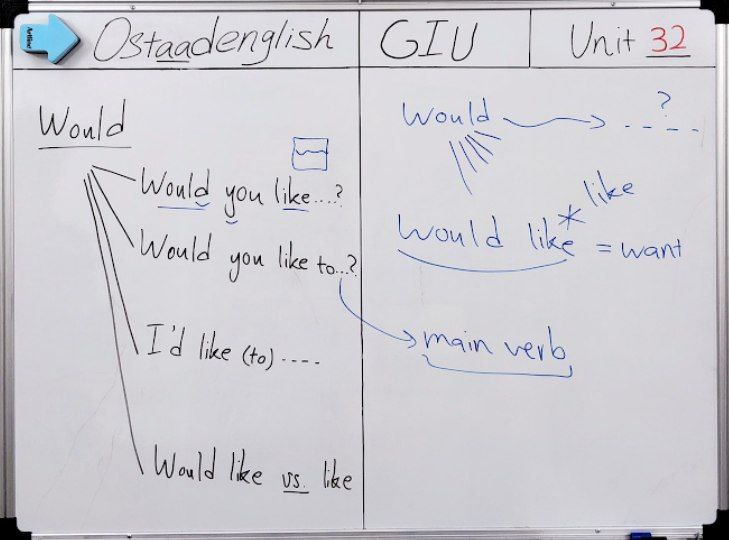 Artline
Ostaadenglish
GIU
Unit 32
Would
Would you like....?
Would you like to...?
I'd like (to) ----
Would like vs. like
Would
?
----
Would like * like
= want
main verb